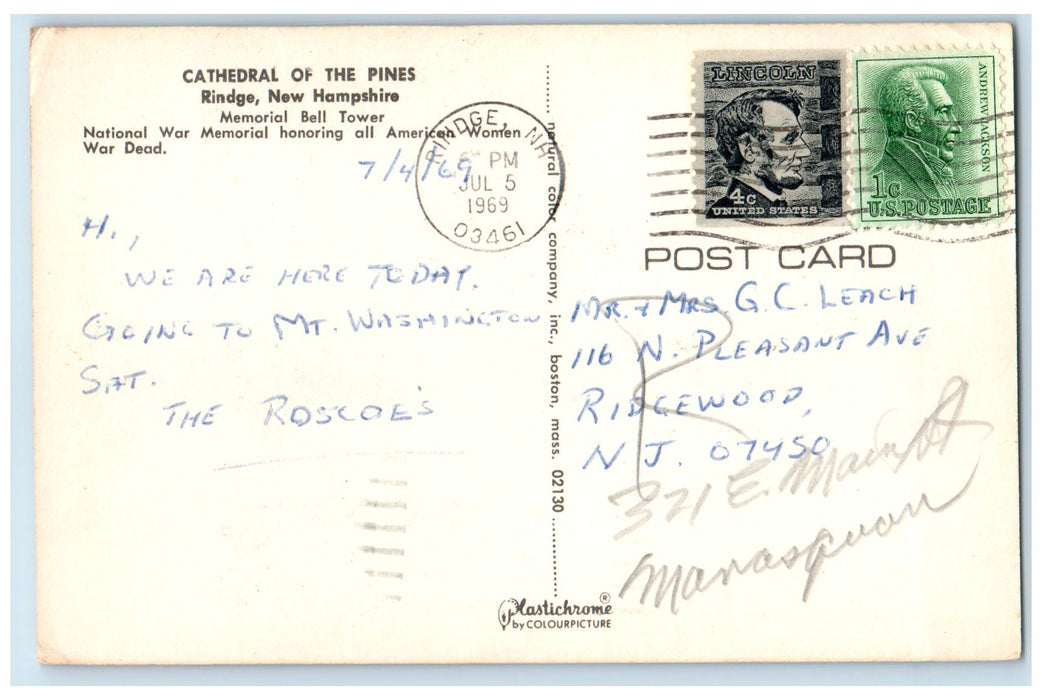 CATHEDRAL OF THE PINES
Rindge, New Hampshire
Memorial Bell Tower
National War Memorial honoring all American Women
War Dead.
7/4/69
RINDGE, NH
PM
JUL 5
1969
03461
LINCOLN
4c
UNITED STATES
ANDREW JACKSON
1c
U.S. POSTAGE
POST CARD
HI,
WE ARE HERE TODAY.
GOING TO MT. WASHINGTON
SAT.
THE ROSCOE'S
natural color company, inc., boston, mass. 02130
MR. + MRS. G. C. LEACH
116 N. PLEASANT AVE
RIDGEWOOD,
N J. 07450
R
321 E. Main St
Manasquan
Plastichrome ®
by COLOURPICTURE